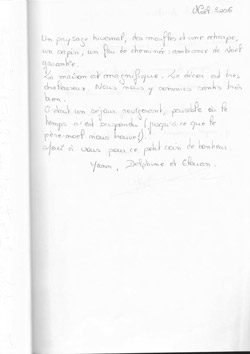 Noël 2006
Un paysage hivernal, des moufles et une écharpe,
un sapin, un feu de cheminée : ambiance de Noël
garantie.
La maison est magnifique. Le décor est très
chaleureux. Nous nous y sommes sentis très
bien.
C'était un séjour ressourçant, possible où le
temps s'est suspendu (jusqu'à ce que le
père-noël nous trouve !)
Merci à vous pour ce petit coin de bonheur.
Yann, Delphine et